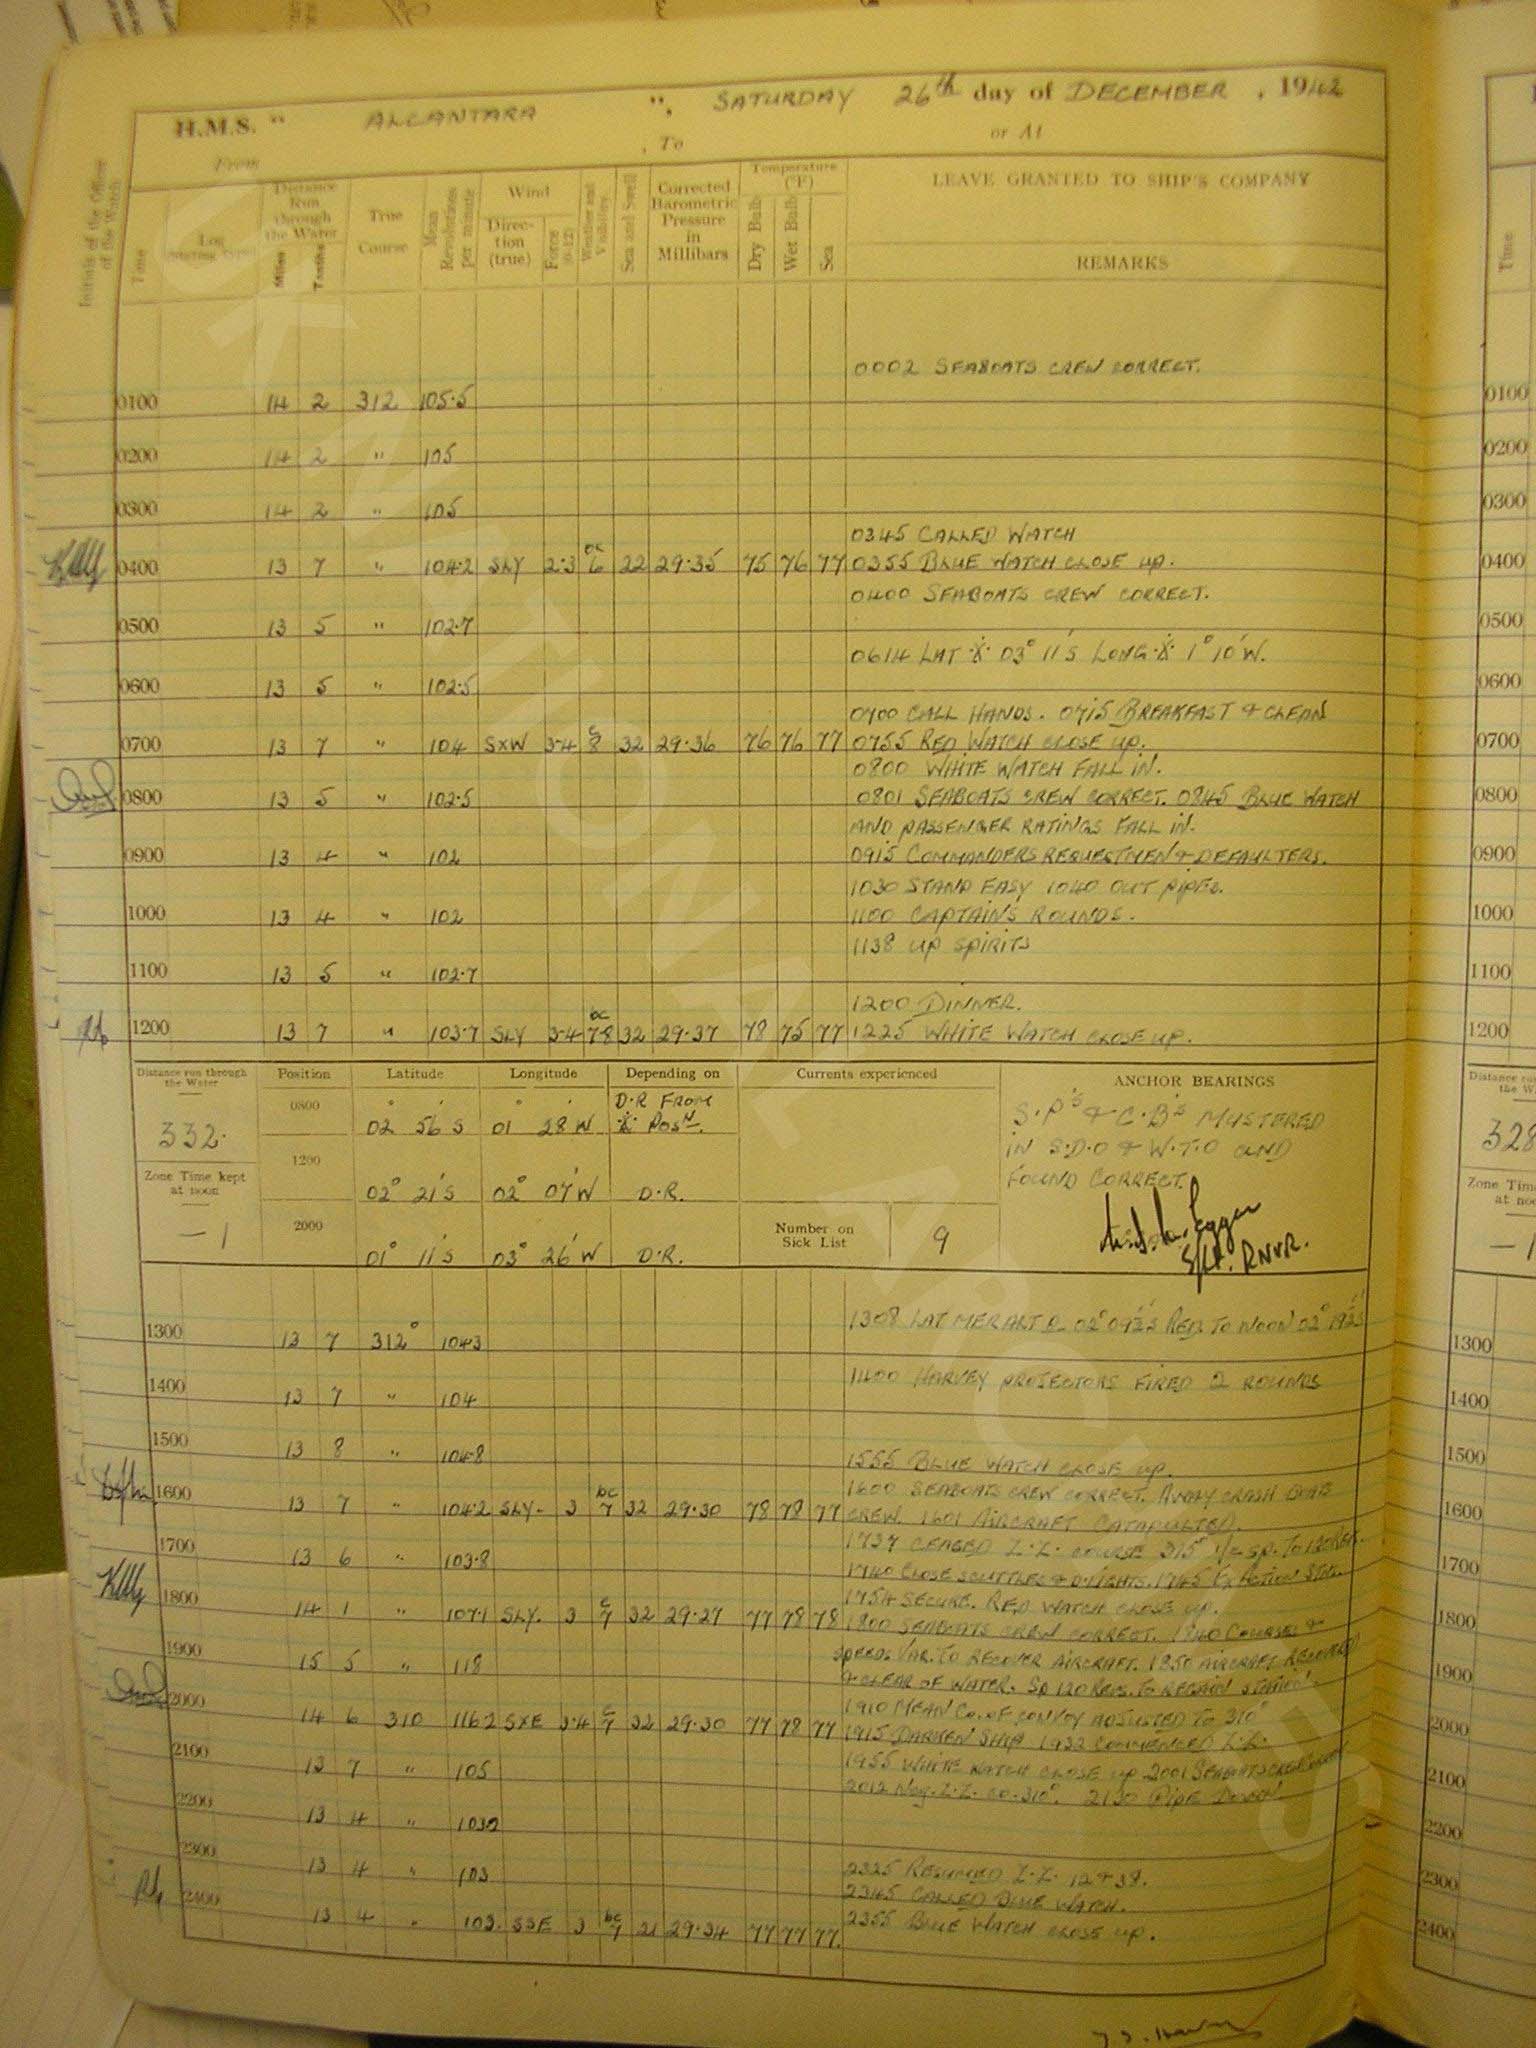 H.M.S. " ALCANTARA ", SATURDAY 26th day of DECEMBER, 1942
From , To or At
Initials of the Officer of the Watch
Time
Log
Distance Run through the Water
Miles Tenths
True Course
Mean Revolutions per minute
Wind
Direction (true)
Force (0-12)
Weather and Visibility
Sea and Swell
Corrected Barometric Pressure in Millibars
Temperature (°F)
Dry Bulb
Wet Bulb
Sea
LEAVE GRANTED TO SHIP'S COMPANY
REMARKS
0002 SEABOATS CREW CORRECT.
0100 14 2 312 105.5
0200 14 2 " 105
0300 14 2 " 105
0345 CALLED WATCH
0400 13 7 " 104.2 SLY 2.3 bc 6 22 29.35 75 76 77 0355 BLUE WATCH CLOSE UP.
0400 SEABOATS CREW CORRECT.
0500 13 5 " 102.7
0614 LAT ·X· 03° 11'S LONG ·X· 1° 10'W.
0600 13 5 " 102.5
0700 CALL HANDS. 0715 BREAKFAST & CLEAN
0700 13 7 " 104 SXW 3.4 c 8 32 29.36 76 76 77 0755 RED WATCH CLOSE UP.
0800 WHITE WATCH FALL IN.
0800 13 5 " 102.5 0801 SEABOATS CREW CORRECT. 0845 BLUE WATCH
AND PASSENGER RATINGS FALL IN.
0900 13 4 " 102 0915 COMMANDERS REQUESTMEN & DEFAULTERS.
1030 STAND EASY 1040 OUT PIPES.
1000 13 4 " 102 1100 CAPTAIN'S ROUNDS.
1138 UP SPIRITS
1100 13 5 " 102.7
1200 DINNER.
1200 13 7 " 103.7 SLY 3.4 bc 7.8 32 29.37 78 75 77 1225 WHITE WATCH CLOSE UP.
Distance run through the Water
332.
Zone Time kept at noon
-1
Position Latitude Longitude Depending on
0800 02° 56'S 01° 28'W D.R FROM ·X· POSN.
1200 02° 21'S 02° 07'W D.R.
2000 01° 11'S 03° 26'W D.R.
Currents experienced
Number on Sick List 9
ANCHOR BEARINGS
S.P's & C.B's MUSTERED
IN S.D.O & W.T.O AND
FOUND CORRECT.
S/Lt. RNVR.
1300 13 7 312° 104.3 1308 LAT MER ALT 02° 09½'S RED. TO NOON 02° 19½'S
1400 13 7 " 104 1400 HARVEY PROJECTORS FIRED 2 ROUNDS
1500 13 8 " 104.8
1555 BLUE WATCH CLOSE UP.
1600 SEABOATS CREW CORRECT. AWAY CRASH BOATS
1600 13 7 " 104.2 SLY. 3 bc 7 32 29.30 78 78 77 CREW. 1601 AIRCRAFT CATAPULTED.
1737 CEASED Z.Z. COURSE 315° SP. TO 120 REV.
1700 13 6 " 103.8
1740 CLOSE SCUTTLES & D.LIGHTS. 1745 EX ACTION STNS.
1754 SECURE. RED WATCH CLOSE UP.
1800 14 1 " 107.1 SLY. 3 c 7 32 29.27 77 78 78 1800 SEABOATS CREW CORRECT. 1840 COURSES &
SPEEDS VAR. TO RECOVER AIRCRAFT. 1850 AIRCRAFT RECOVERED
1900 15 5 " 118
& CLEAR OF WATER. SP 120 REVS. TO REGAIN STATION.
1910 MEAN CO. OF CONVOY ADJUSTED TO 310°
2000 14 6 310 116.2 SXE 3.4 c 7 32 29.30 77 78 77 1915 DARKEN SHIP 1932 COMMENCED Z.Z.
1955 WHITE WATCH CLOSE UP 2001 SEABOATS CREW
2100 13 7 " 105
2012 Z.Z. CO. 310°. 2130 PIPE DOWN.
2200 13 4 " 103
2300 13 4 " 103 2325 RESUMED Z.Z. 12 & 38.
2345 CALLED BLUE WATCH.
2400 13 4 " 103. SSE 3 bc 7 21 29.34 77 77 77. 2355 BLUE WATCH CLOSE UP.
Time
0100
0200
0300
0400
0500
0600
0700
0800
0900
1000
1100
1200
328
-1
1300
1400
1500
1600
1700
1800
1900
2000
2100
2200
2300
2400